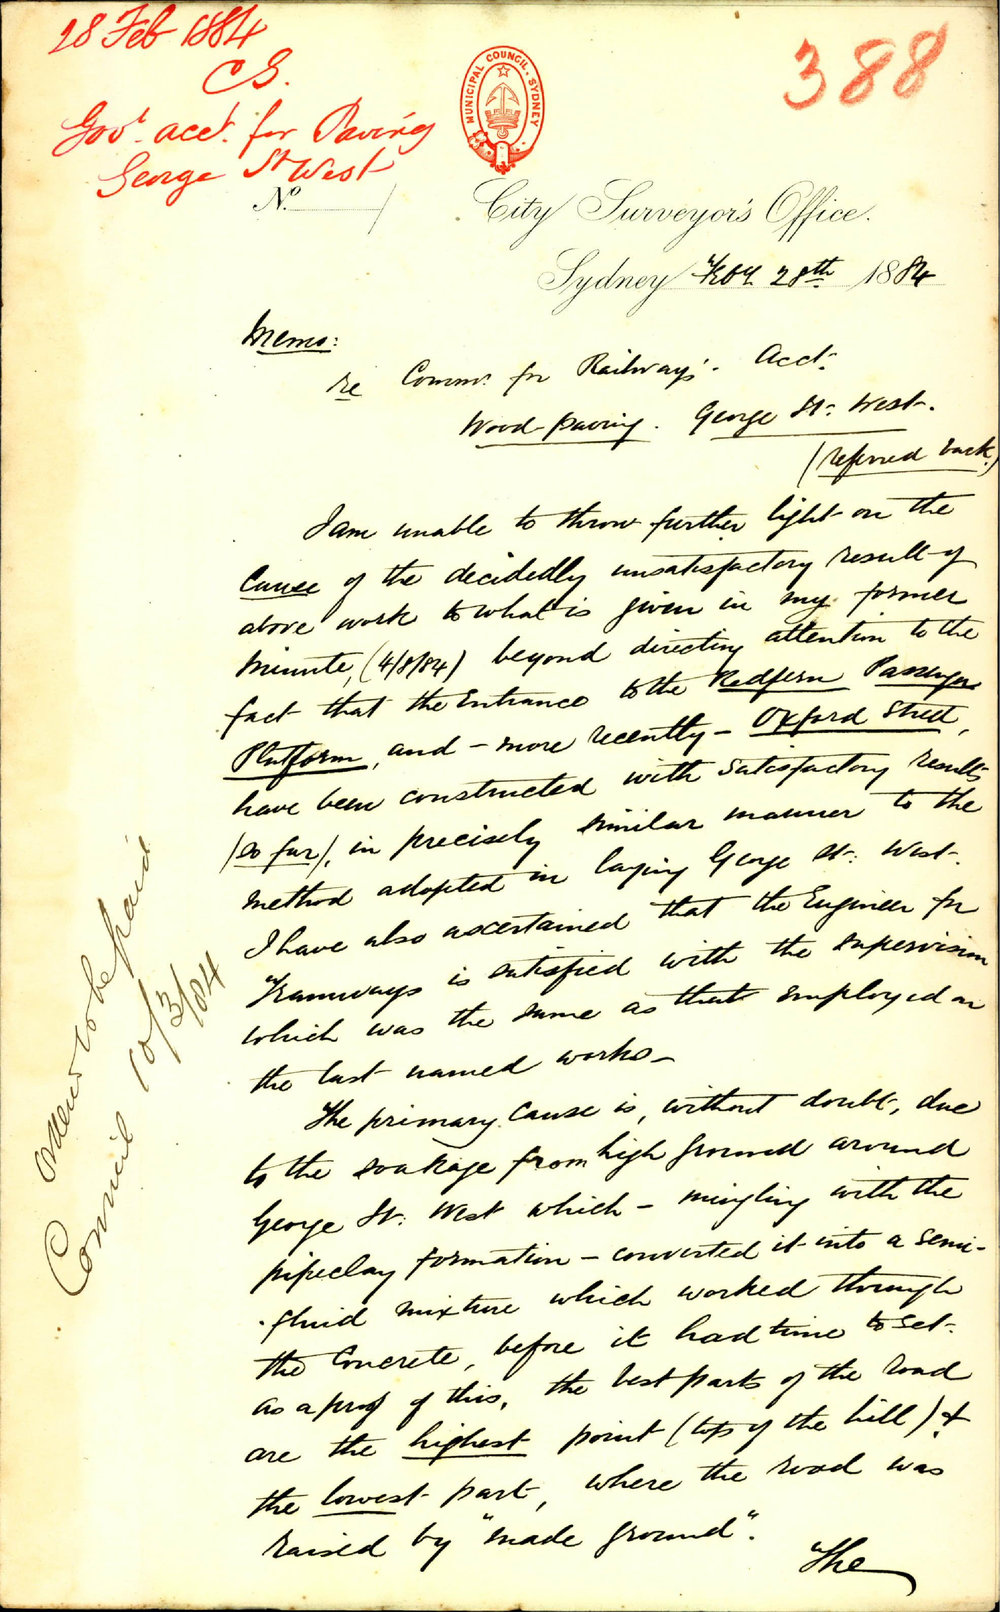 28 Feb 1884
CS.
Govt. acct. for Paving
George St West
388
MUNICIPAL COUNCIL. SYDNEY
No. /
City Surveyor's Office.
Sydney Feby. 28th 1884
Memo:
re Commr. for Railways'. Acct.
Wood-paving. George St: West.
(referred back.)
I am unable to throw further light on the
Cause of the decidedly unsatisfactory result of
above work to what is given in my former
Minute, (4/8/84) beyond directing attention to the
fact that the Entrance to the Redfern Passenger
Platform, and - more recently - Oxford Street,
have been constructed with satisfactory results
(so far), in precisely similar manner to the
method adopted in laying George St: West.
I have also ascertained that the Engineer for
Tramways is satisfied with the supervision
which was the same as that employed on
the last named works -
The primary Cause is, without doubt, due
to the soakage from high ground around
George St: West which - mingling with the
pipeclay formation - converted it into a semi-
-fluid mixture which worked through
the Concrete, before it had time to set.
as a proof of this, the best parts of the road
are the highest point (top of the hill) &
the lowest part, where the road was
raised by "made ground".
The
Ordered to be paid
Council 10/3/84